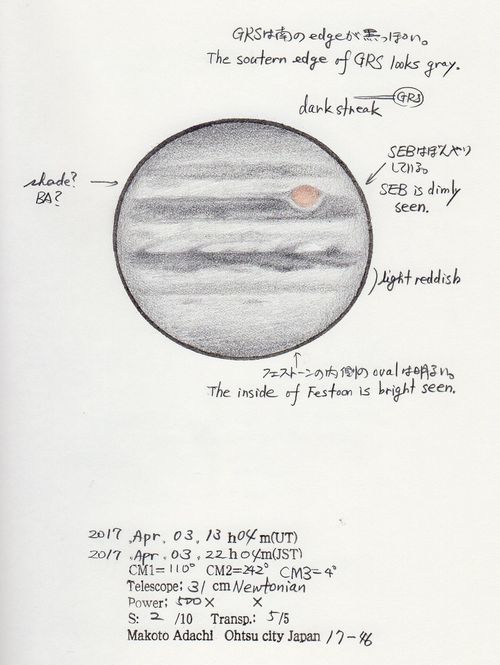 GRSは南のedgeが黒っぽい。
The soutern edge of GRS looks gray.
GRS
dark streak
SEBはぼんやり
している。
SEB is dimly
seen.
shade?
BA?
light reddish
フェストーンの内側のovalは明るい。
The inside of Festoon is bright seen.
2017 Apr. 03, 13 h04m(UT)
2017 Apr. 03, 22 h04m(JST)
CM1=110° CM2=242° CM3=4°
Telescope: 31 cm Newtonian
Power: 500× ×
S: 2 /10 Transp.: 5/5
Makoto Adachi Ohtsu city Japan 17-46